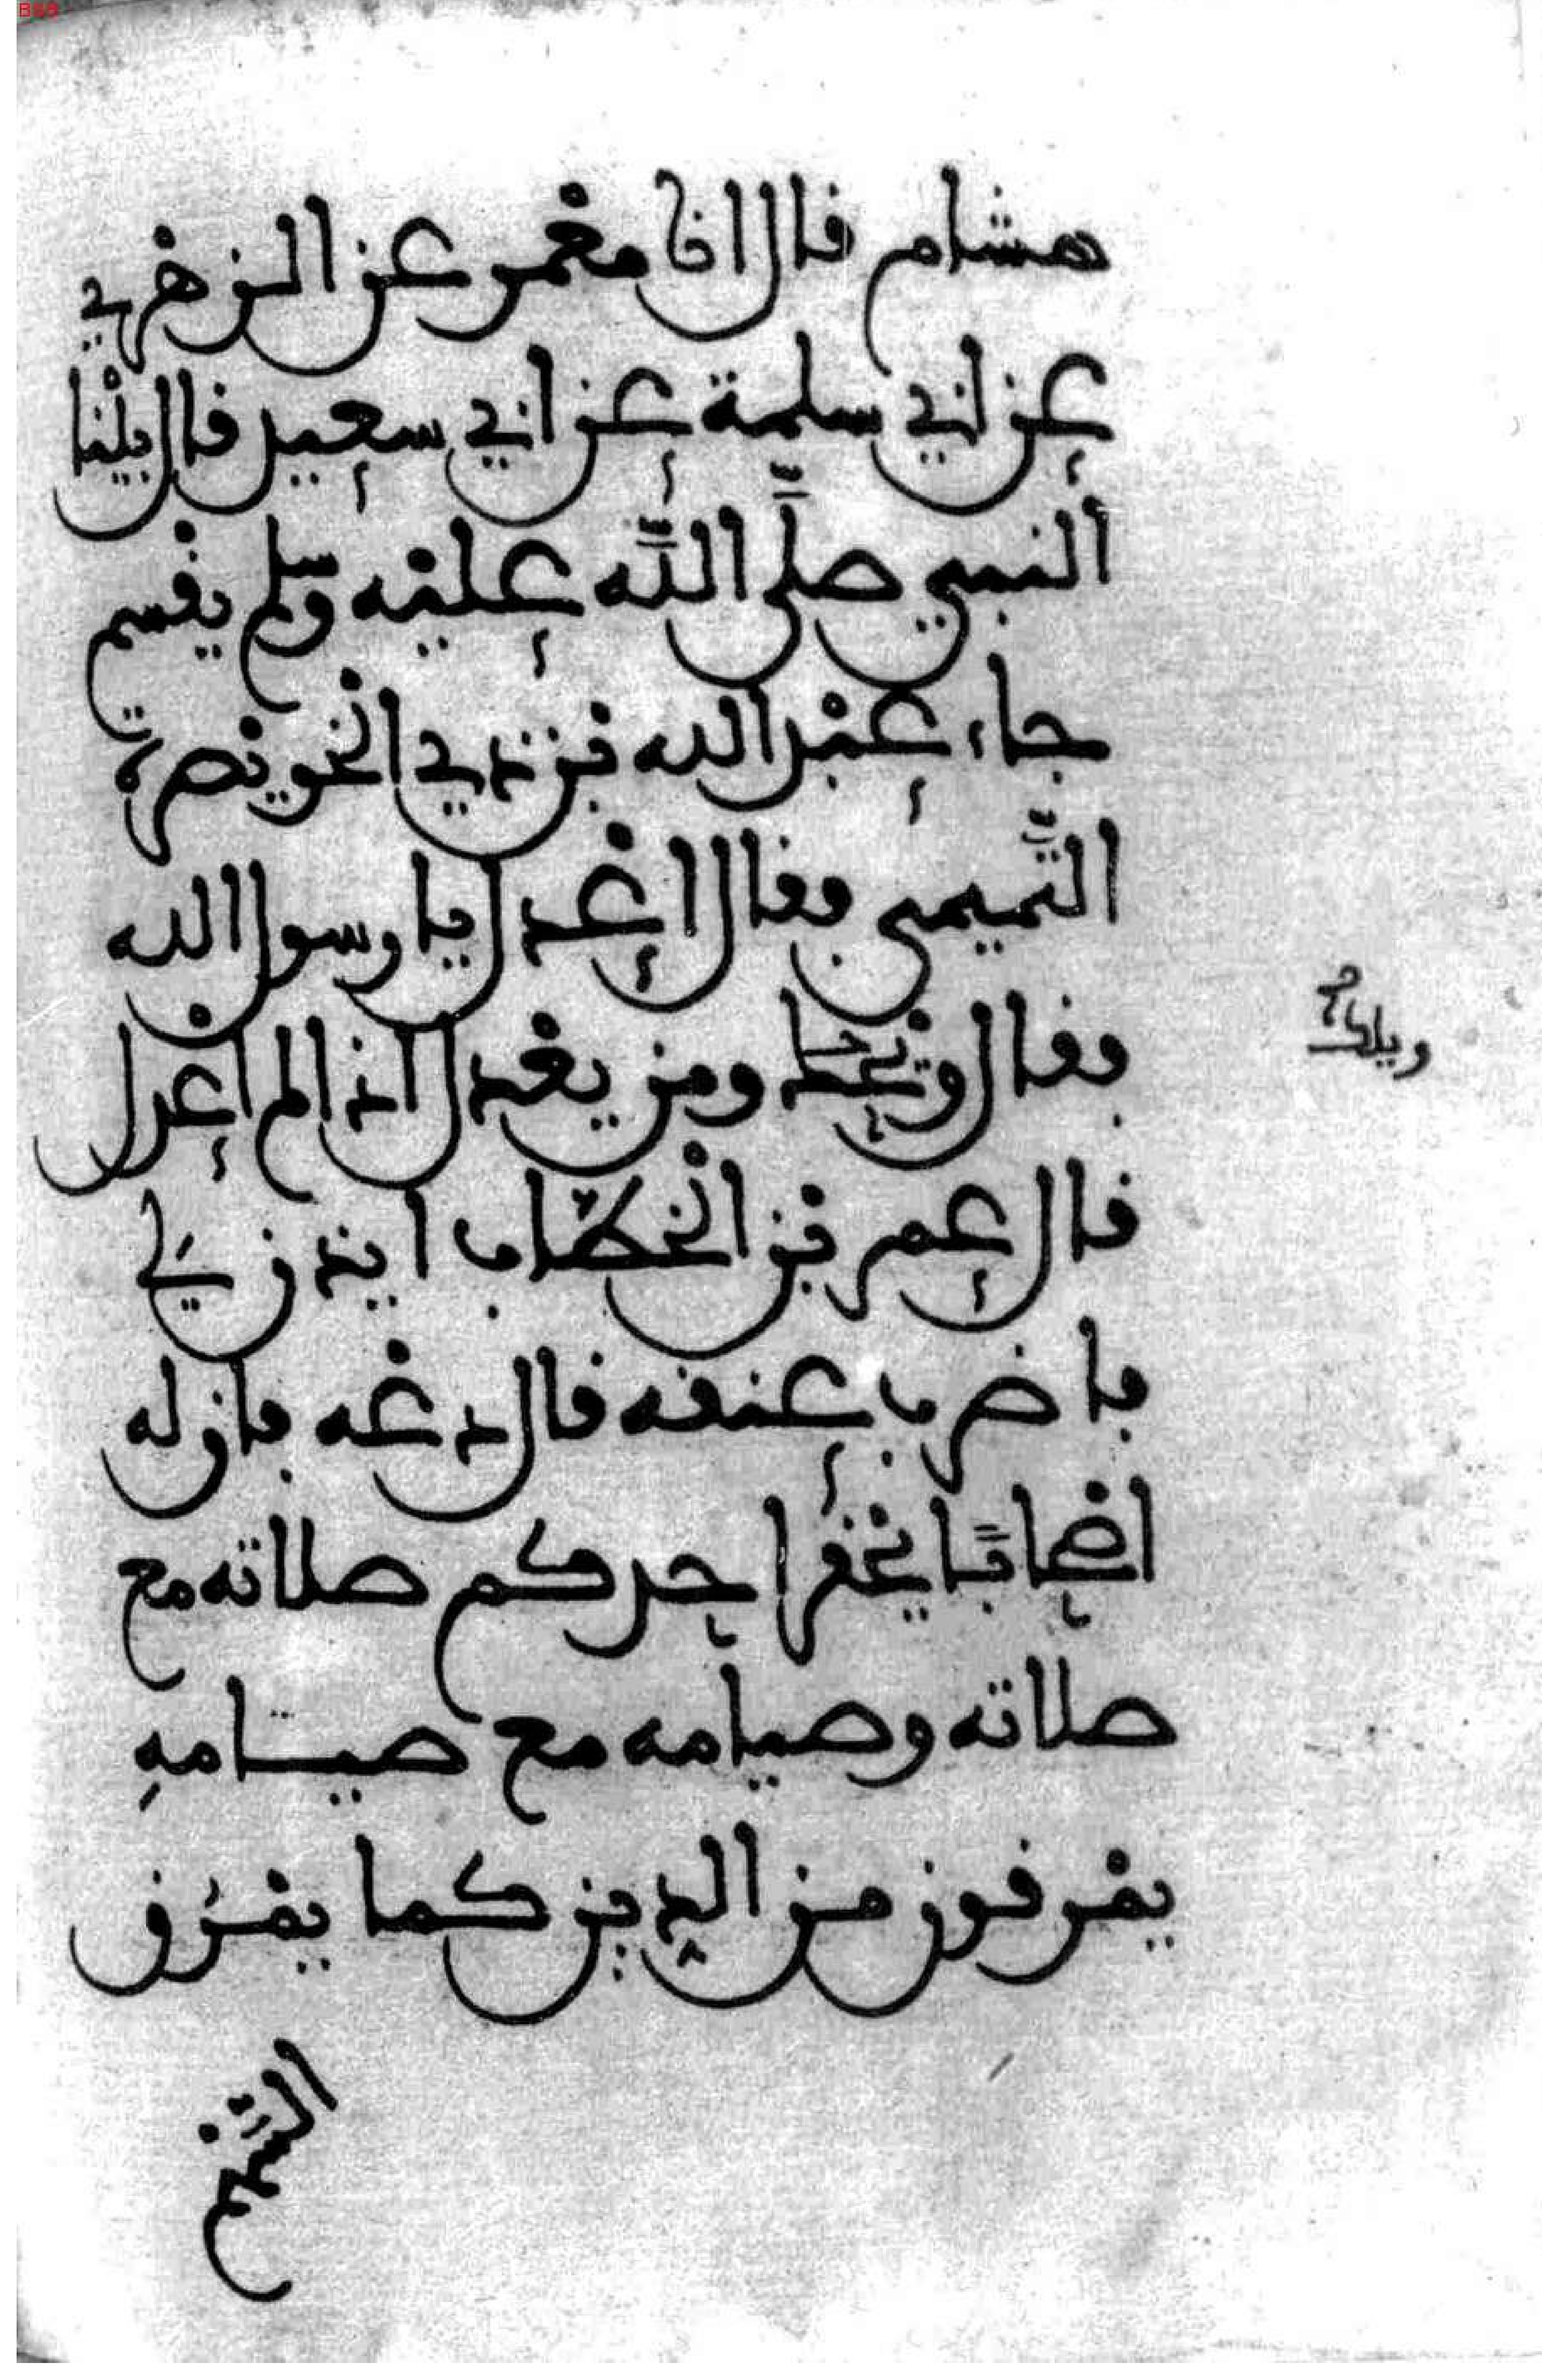 هشام قال انا معمر عن الزهري
عن ابي سلمة عن ابي سعيد قال بينا
النبي صلى الله عليه وسلم يقسم
جاء عبد الله بن ذي الخويصرة
التميمي فقال اعدل يا رسول الله
فقال ويحك ومن يعدل اذا لم اعدل
ويلك
قال عمر بن الخطاب ايذن لي
فاضرب عنقه قال دعه فان له
اصحابا يحقر احدكم صلاته مع
صلاته وصيامه مع صيامه
يمرقون من الدين كما يمرق
السهم